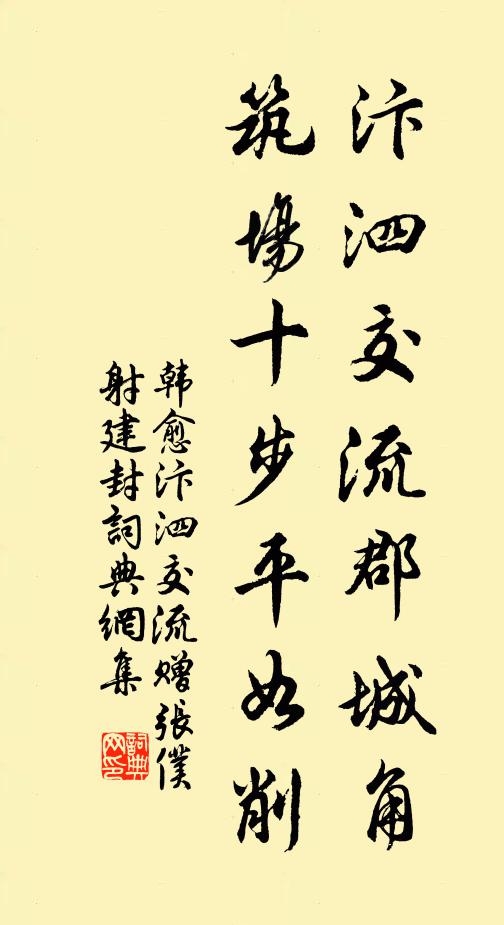 汴泗交流郡城角
筑場十步平如削
韩愈汴泗交流赠張僕
射建封詞典網集
詞典
网印